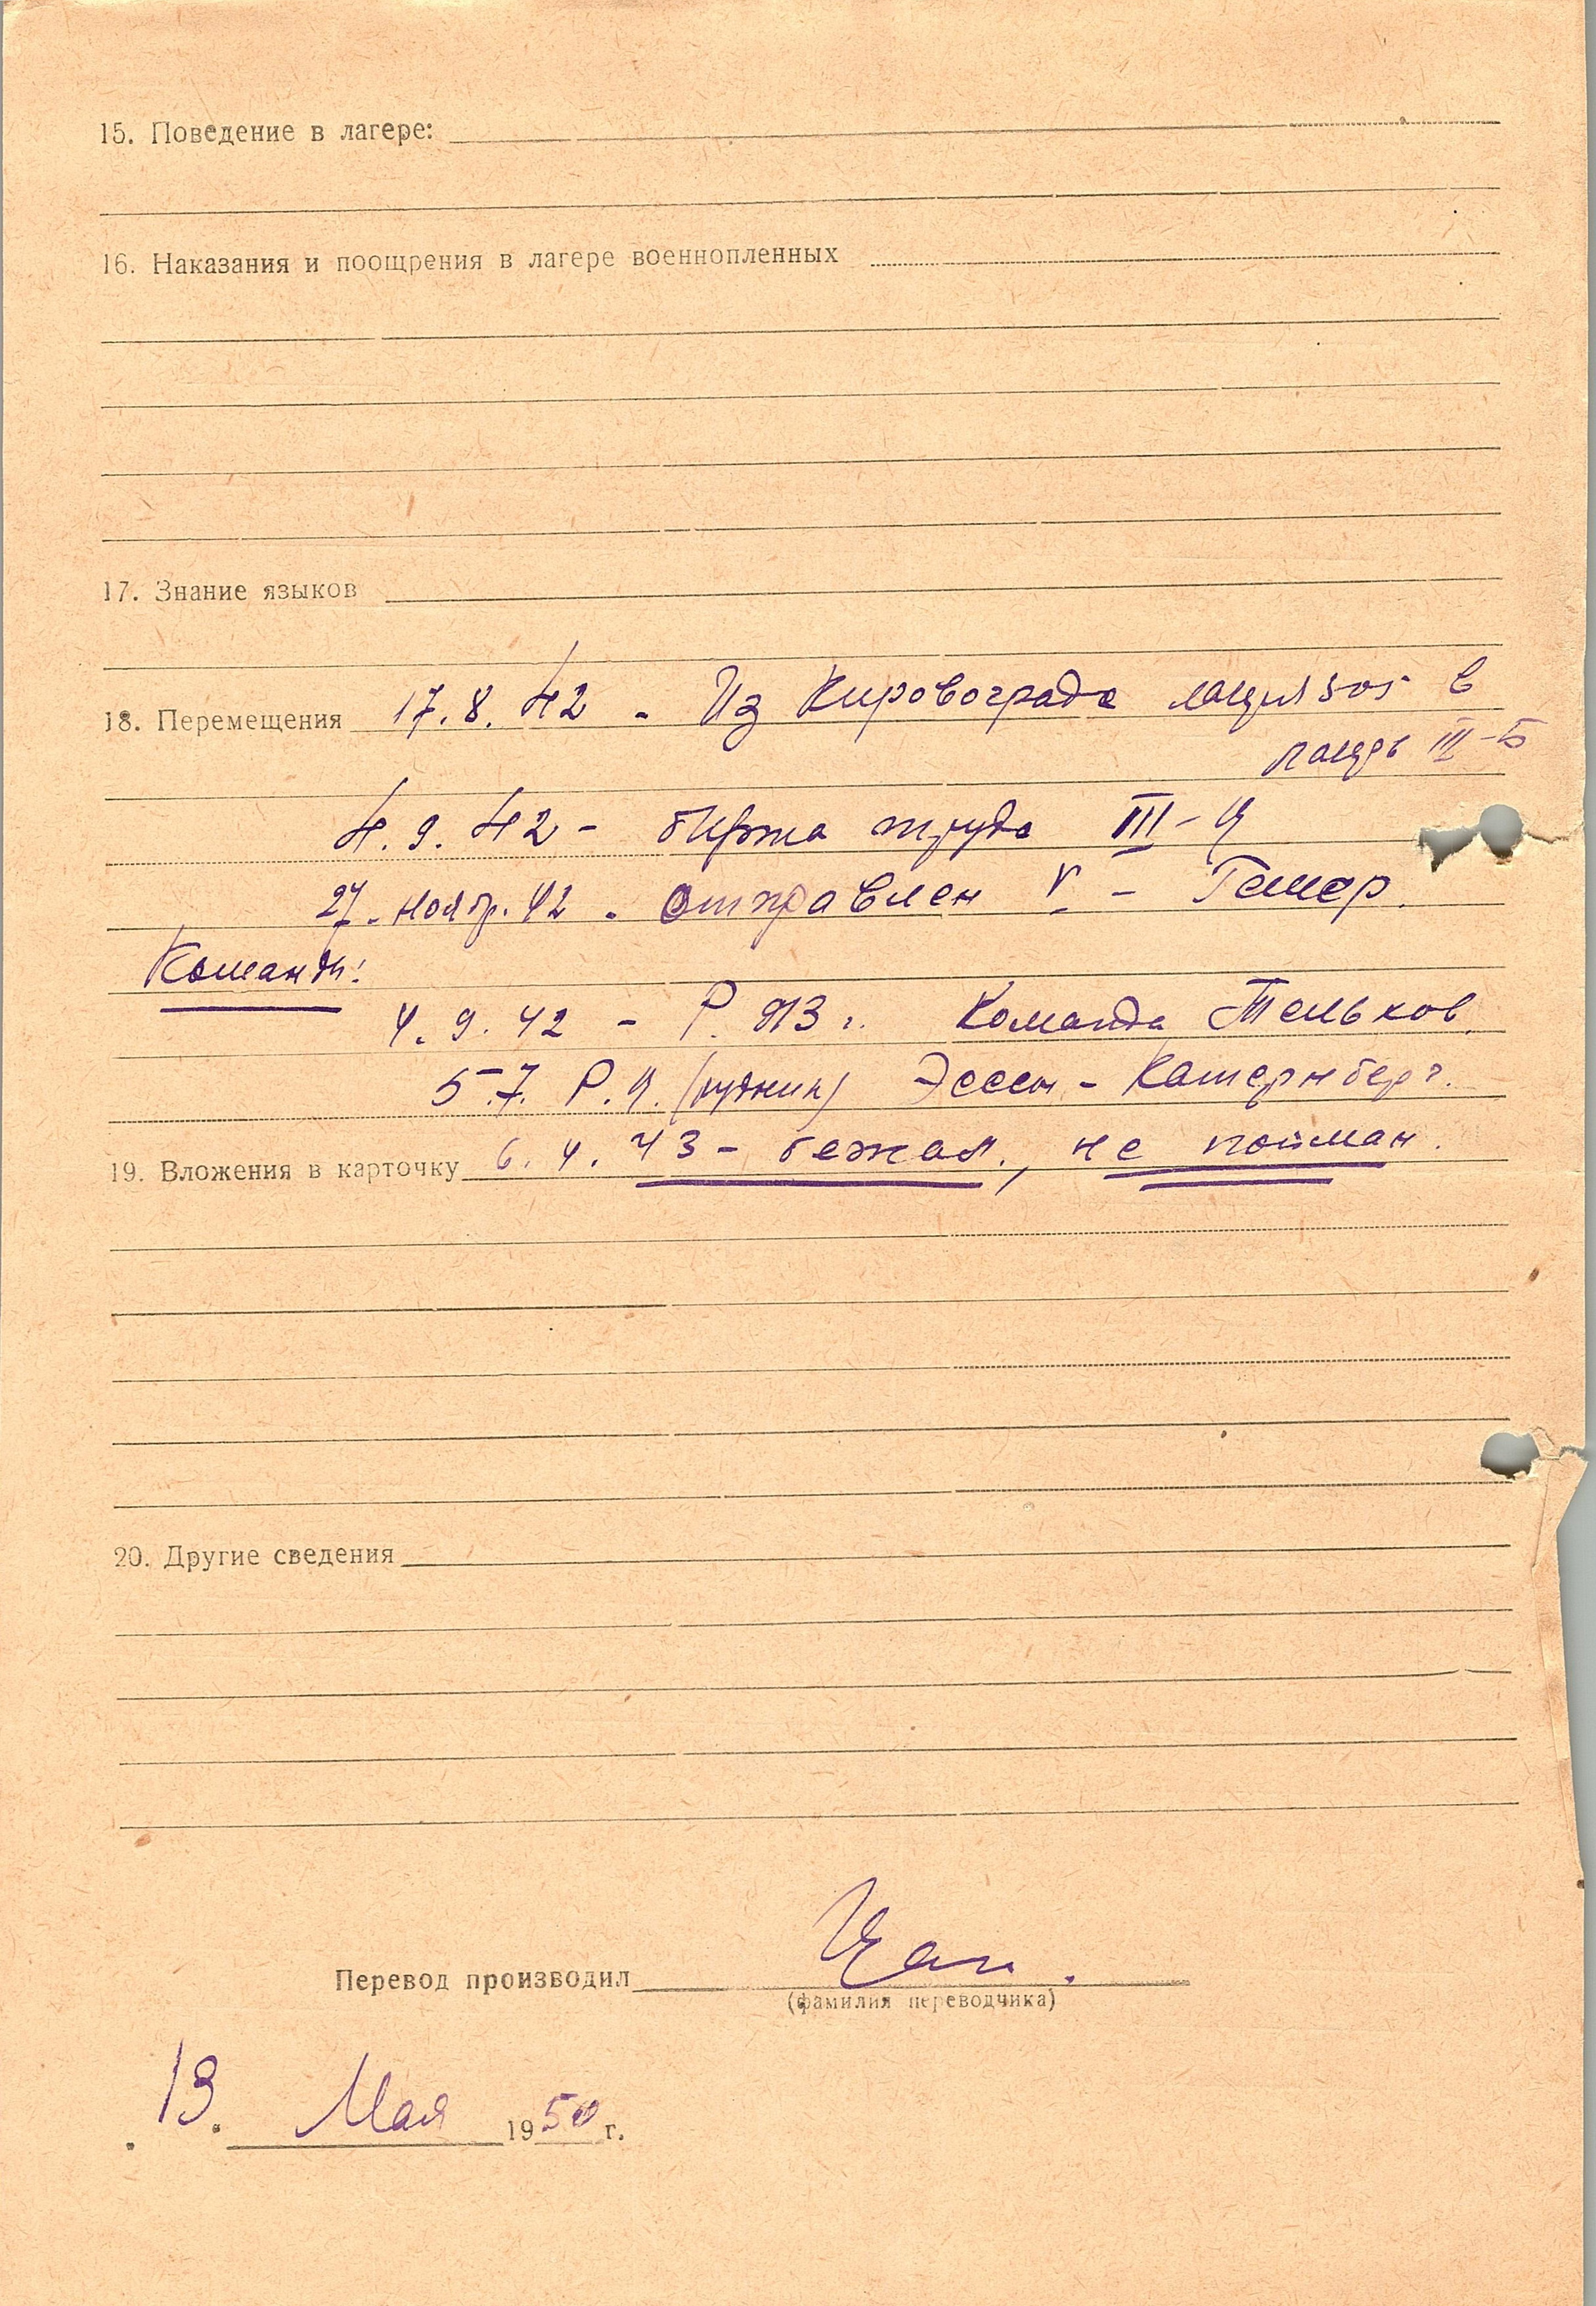 15. Поведение в лагере:
16. Наказания и поощрения в лагере военнопленных
17. Знание языков
18. Перемещения 17.8.42 - Из Кировограда в
лагерь III-Б
4.9.42 - биржа труда III-
27. нояб. 42. отправлен V - Гемер.
Команды:
4.9.42 - Р. 913 г. Команда Тельков.
5.7. Р.Я. (рудник) Эссен - Катернберг.
19. Вложения в карточку 6.4.43 - бежал, не пойман.
20. Другие сведения
Перевод производил
(фамилия переводчика)
13. Мая 1950 г.